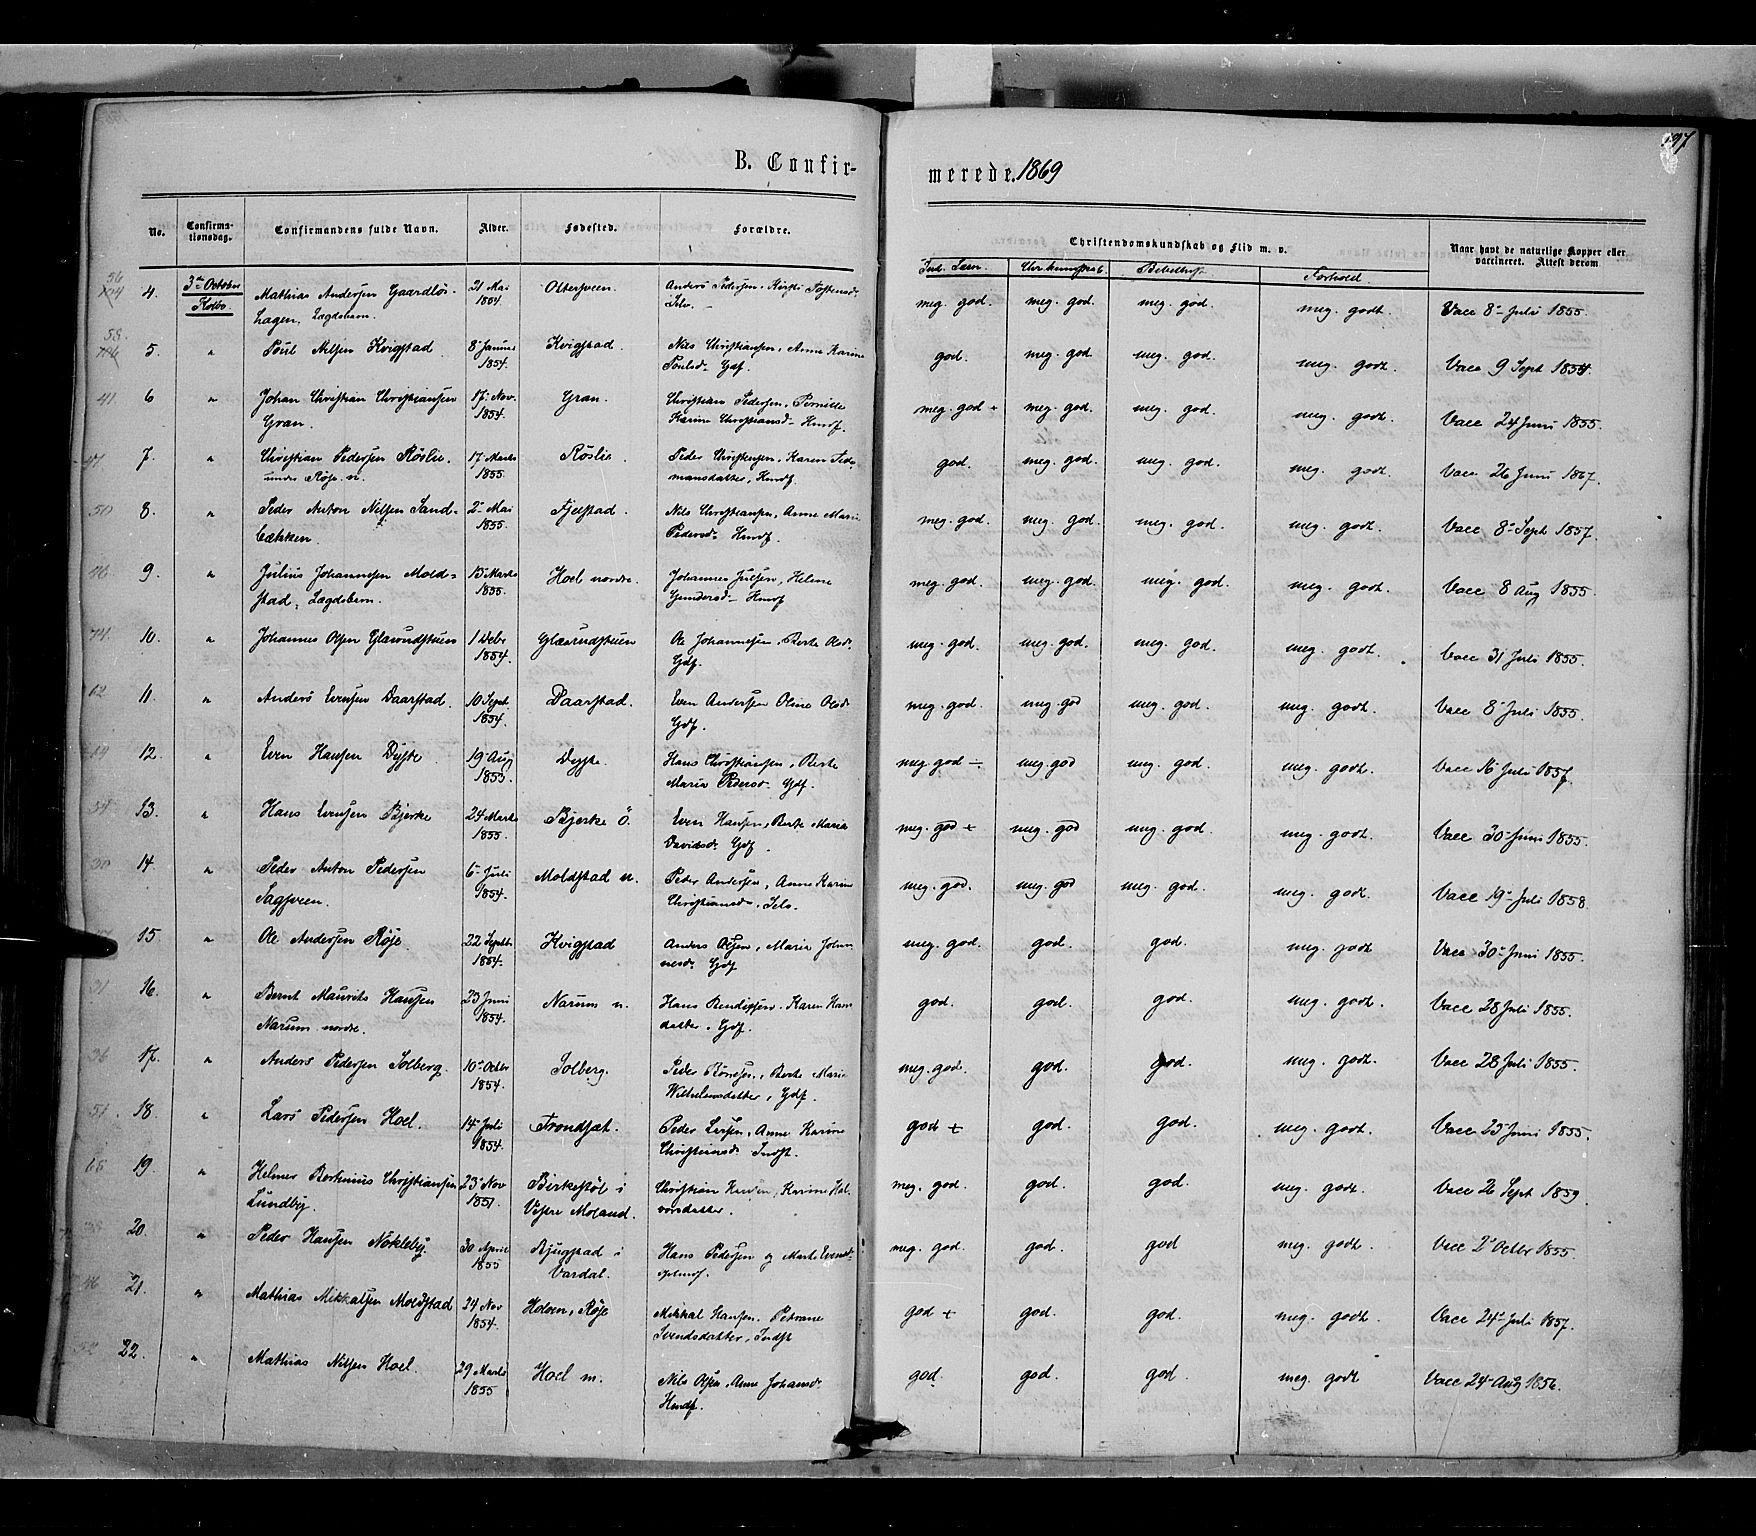 197
B. Confirmerede. 1869
No. Confirmationsdag. Confirmandens fulde Navn. Alder. Fødested. Forældre. Christendomskundskab og Flid m. v. Naar havt de naturlige Kopper eller vaccineret. Attest derom.
Forhold
4. 3die October Mathias Andersen Gaardlös- 21 Mai Oltersveen. Anders Pedersen, meg. god. meg. god. meg. god. meg. godt. Vacc 8 Juli 1855.
hagen. Lægdsbarn. 1854.
5. " Poul Nilsen Kvigstad 8 Januar Kvigstad. Nils Christiansen, Anne Karine god. meg. god. meg. god. meg. godt. Vacc 9 Sept 1854
1854. Poulsd. Gdf.
6 " Johan Christian Christiansen 17 Nov. Gran. Christian Pedersen, Pernille meg. god + meg. god. meg. god. meg. godt. Vacc 24 Juni 1855.
Gran. 1854. Karine Christiansd. Hmdf.
7. " Christian Pedersen Röslie. 17 Marts Röslie. Peder Christensen, Karen god. meg. god. meg. god. meg. godt. Vacc 26 Juni 1867.
under Röje n. 1855. mansdatter, Hmdf.
8. " Peder Anton Nilsen Sand- 2 Mai Fjelstad. Nils Christiansen, Anne Marie meg. god. meg. god. meg. god. meg. godt. Vacc 8 Sept 1857.
bækken. 1855. Pedersd. Hmdf.
9. " Julius Johannesen Mold- 15 Marts Hoel nordre. Johannes Julsen, Helene meg. god. meg. god. meg. god. meg. godt. Vacc 8 Aug 1855.
stad, Lægdsbarn. 1855. Gundersd. Hmdf
10. " Johannes Olsen Glæsrudstuen 1 Debr Glæsrudstuen Ole Johannesen, Berte Olsd. meg. god. meg. god. meg. god. meg. godt. Vacc 31 Juli 1855.
1854. Gdf.
11. " Anders Evensen Daarstad. 10 Sept. Daarstad. Even Andersen Oline Olsd. meg. god. meg. god meg. god. meg. godt. Vacc 8 Juli 1855.
1854. Gdf.
12. " Even Hansen Dyste. 19 Aug Dyste. Hans Christiansen, Berte meg. god meg. god meg. god. meg. godt. Vacc 16 Juli 1857.
1853. Maria Pedersd. Gdf.
13. " Hans Evensen Bjerke 24 Marts Bjerke Ö. Even Hansen, Berte Maria meg. god + meg. god meg. god. meg. godt. Vacc 30 Juni 1855.
1855. Davidsd. Gdf.
14. " Peder Anton Pedersen 6 Juli Moldstad n. Peder Andersen, Anne Karine meg. god. meg. god meg. god. meg. godt. Vacc 19 Juli 1858.
Sagsveen. 1854. Christiansd.
15. " Ole Andersen Röje. 22 Septbr Kvigstad Anders Olsen, Maria Johan- meg. god. god. god. meg. godt Vacc 30 Juni 1855.
1854. nesd. Gdf
16. " Bernt Maurits Hansen 23 Juni Narum n. Hans Bendixsen, Karen Hans- god. god. god. meg. godt. Vacc 28 Juli 1855.
Narum nordre. 1854. datter, Gdf.
17. " Anders Pedersen Solberg. 10 Octbr Solberg. Peder, Berte Marie meg. god. god. god. meg. godt. Vacc 28 Juli 1855.
1854. Wilhelmsdatter, Gdf.
18. " Lars Pedersen Hoel. 14 Juli Trondsæt. Peder Larsen, Anne Karine god + god. god. meg. godt. Vacc 23 Juni 1855.
1854. Christiansd. Indst.
19. " Helmer Bertinius Christiansen 23 Nov Birkestöl i Christian Hansen, Karine Hal- meg. god. god. god. meg. godt. Vacc 2 Sept 1859.
Lundby. Vestre Moland. vorsdatter.
20. " Peder Hansen Nökleby 30 April Bjugstad i Hans Pedersen og Marte Evensd. meg. god. god. god meg. godt. Vacc 2 Octbr 1855.
1855 Vardal.
21. " Mathias Mikkalsen Moldstad 24 Nov Holven, Röje Mikkal Hansen, Petrane god + god. god. meg. godt. Vacc 24 Juli 1857.
1854. Svendsdatter, Indst
22. " Mathias Nilsen Hoel. 29 Marts Hoel m. Nils Olsen, Anne Johansd. god. god. god. meg. godt Vacc 24 Aug 1856.
1855 Hmdf.